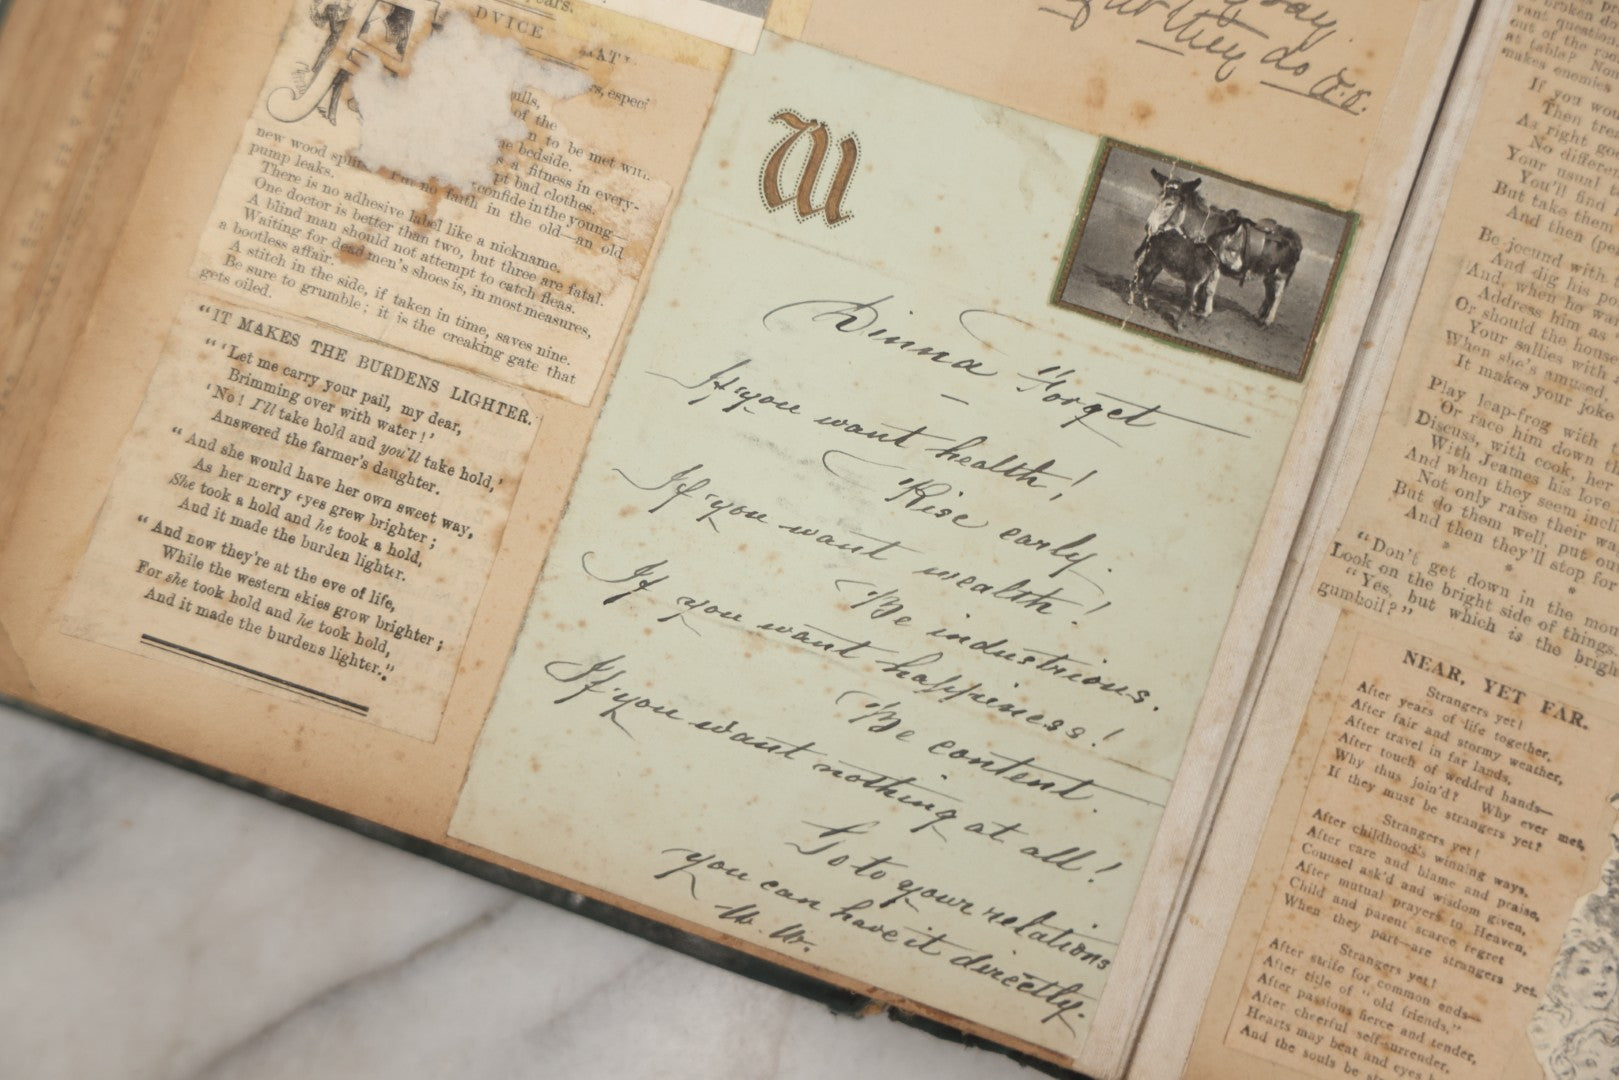 years.
DVICE
especi
pills,
of the
n to be met with
bedside.
s a fitness in every-
pt bad clothes.
confide in the young—
new wood
I've no faith in the old—an old
pump leaks.
There is no adhesive label like a nickname.
One doctor is better than two, but three are fatal.
A blind man should not attempt to catch fleas.
Waiting for dead men's shoes is, in most measures,
a bootless affair.
A stitch in the side, if taken in time, saves nine.
Be sure to grumble; it is the creaking gate that
gets oiled.
"IT MAKES THE BURDENS LIGHTER.
"'Let me carry your pail, my dear,
Brimming over with water!'
'No! I'll take hold and you'll take hold,'
Answered the farmer's daughter.
"And she would have her own sweet way,
As her merry eyes grew brighter;
She took a hold and he took a hold,
And it made the burden lighter.
"And now they're at the eve of life,
While the western skies grow brighter;
For she took hold and he took hold,
And it made the burdens lighter."
they do
W
Dinna Forget
—
If you want health!
Rise early.
If you want wealth!
Be industrious.
If you want happiness!
Be content.
If you want nothing at all!
Go to your relations
you can have it directly.
W. W.
broken
vant question
out of the
at table?
makes enemies
If you wou
Then tre
As right
No differen
Your usual
You'll find
But take them
And then (pe
Be jocund with
And dig his
And, when he
Address him as
Or should the house
Your sallies with
When she's amused,
It makes your joke
Play leap-frog with
Or race him down
Discuss, with cook, her
With Jeames his love
And when they seem incl
Not only raise their wa
But do them well, put out
And then they'll stop for
"Don't get down in the
Look on the bright side of things.
"Yes, but which is the brigh
gumboil?"
NEAR, YET FAR.
Strangers yet!
After years of life together,
After fair and stormy weather,
After travel in far lands,
After touch of wedded hands—
Why thus join'd? Why ever met,
If they must be strangers yet?
Strangers yet!
After childhood's winning ways,
After care and blame and praise,
Counsel ask'd and wisdom given,
After mutual prayers to Heaven,
Child and parent scarce regret
When they part—are strangers yet.
Strangers yet!
After strife for common ends—
After title of "old friends,"
After passions fierce and tender,
After cheerful self-surrender,
Hearts may beat and eyes
And the souls be